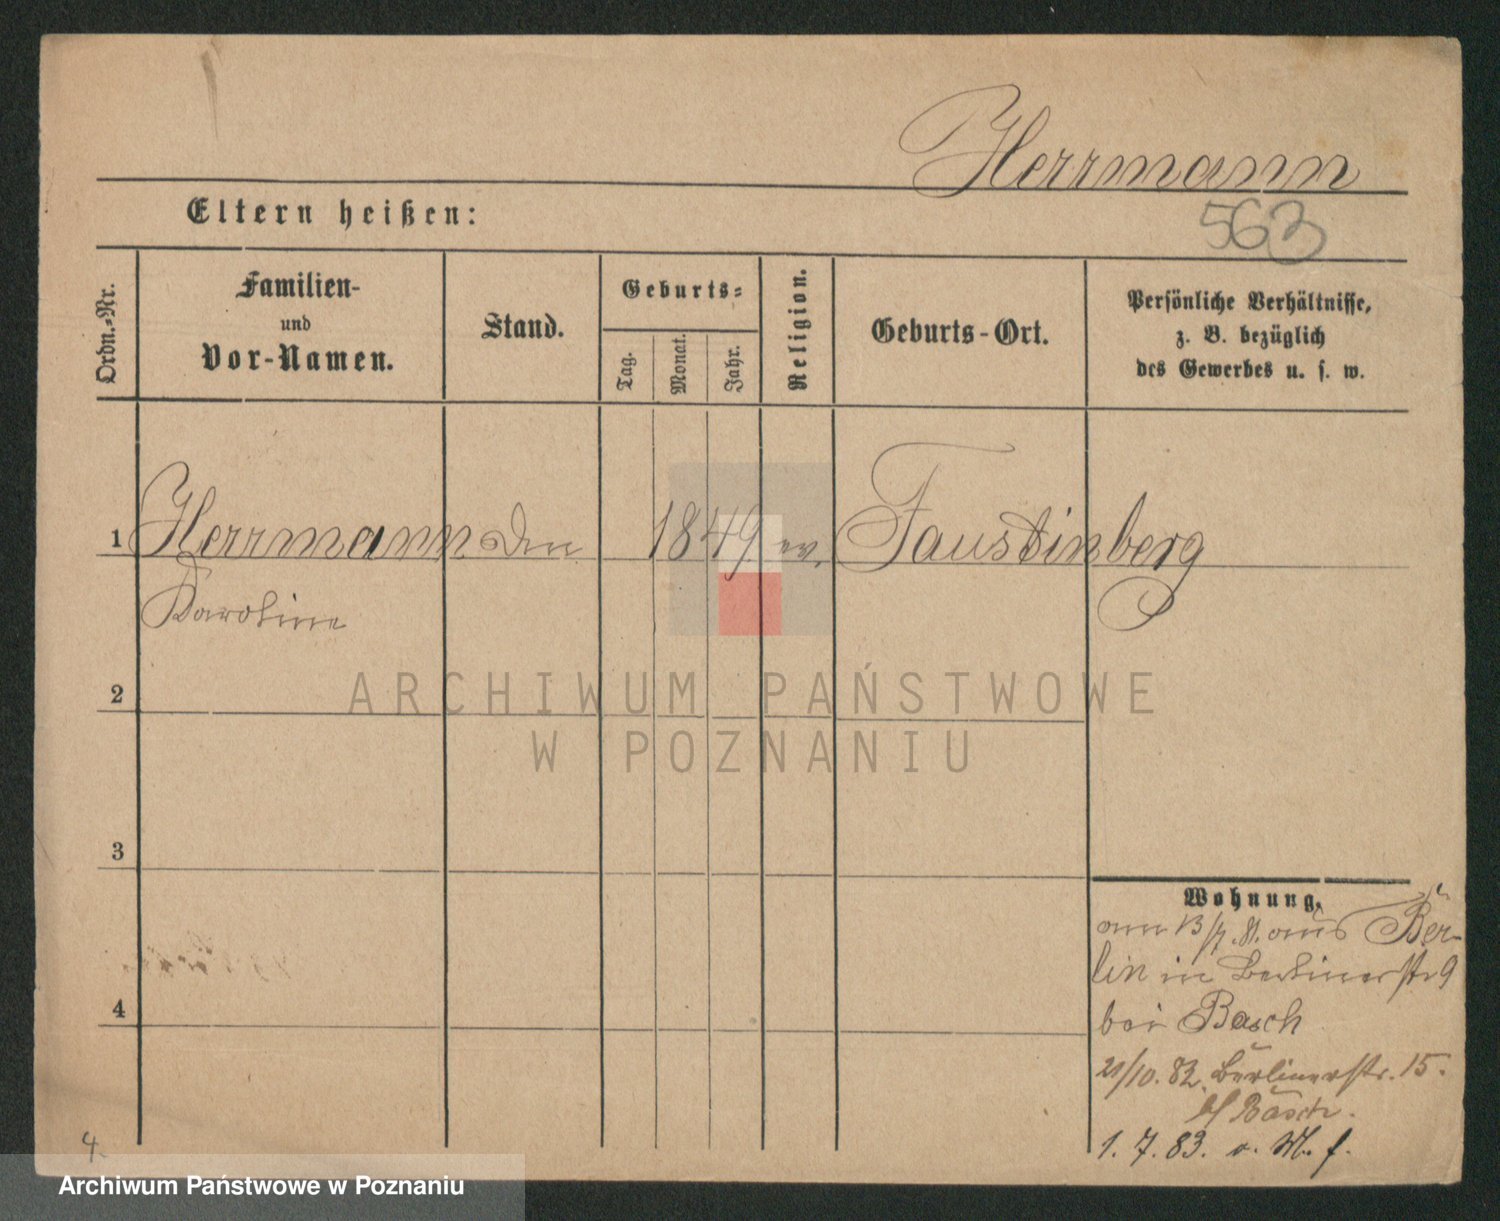 Herrmann
563
Eltern heißen:
Ordn.-Nr.
Familien-
und
Vor-Namen.
Stand.
Geburts-
Tag.
Monat.
Jahr.
Religion.
Geburts-Ort.
Persönliche Verhältnisse,
z. B. bezüglich
des Gewerbes u. s. w.
1 Herrmann 1849 ev. Faustinberg
Karoline
2
3
4
Wohnung.
am 13/7. 81. aus Ber-
lin in Berlinerstr 9
bei Basch
21/10. 82. Berlinerstr. 15.
b/ Basch.
1. 7. 83. v. M. f.
4.
ARCHIWUM PAŃSTWOWE
W POZNANIU
Archiwum Państwowe w Poznaniu